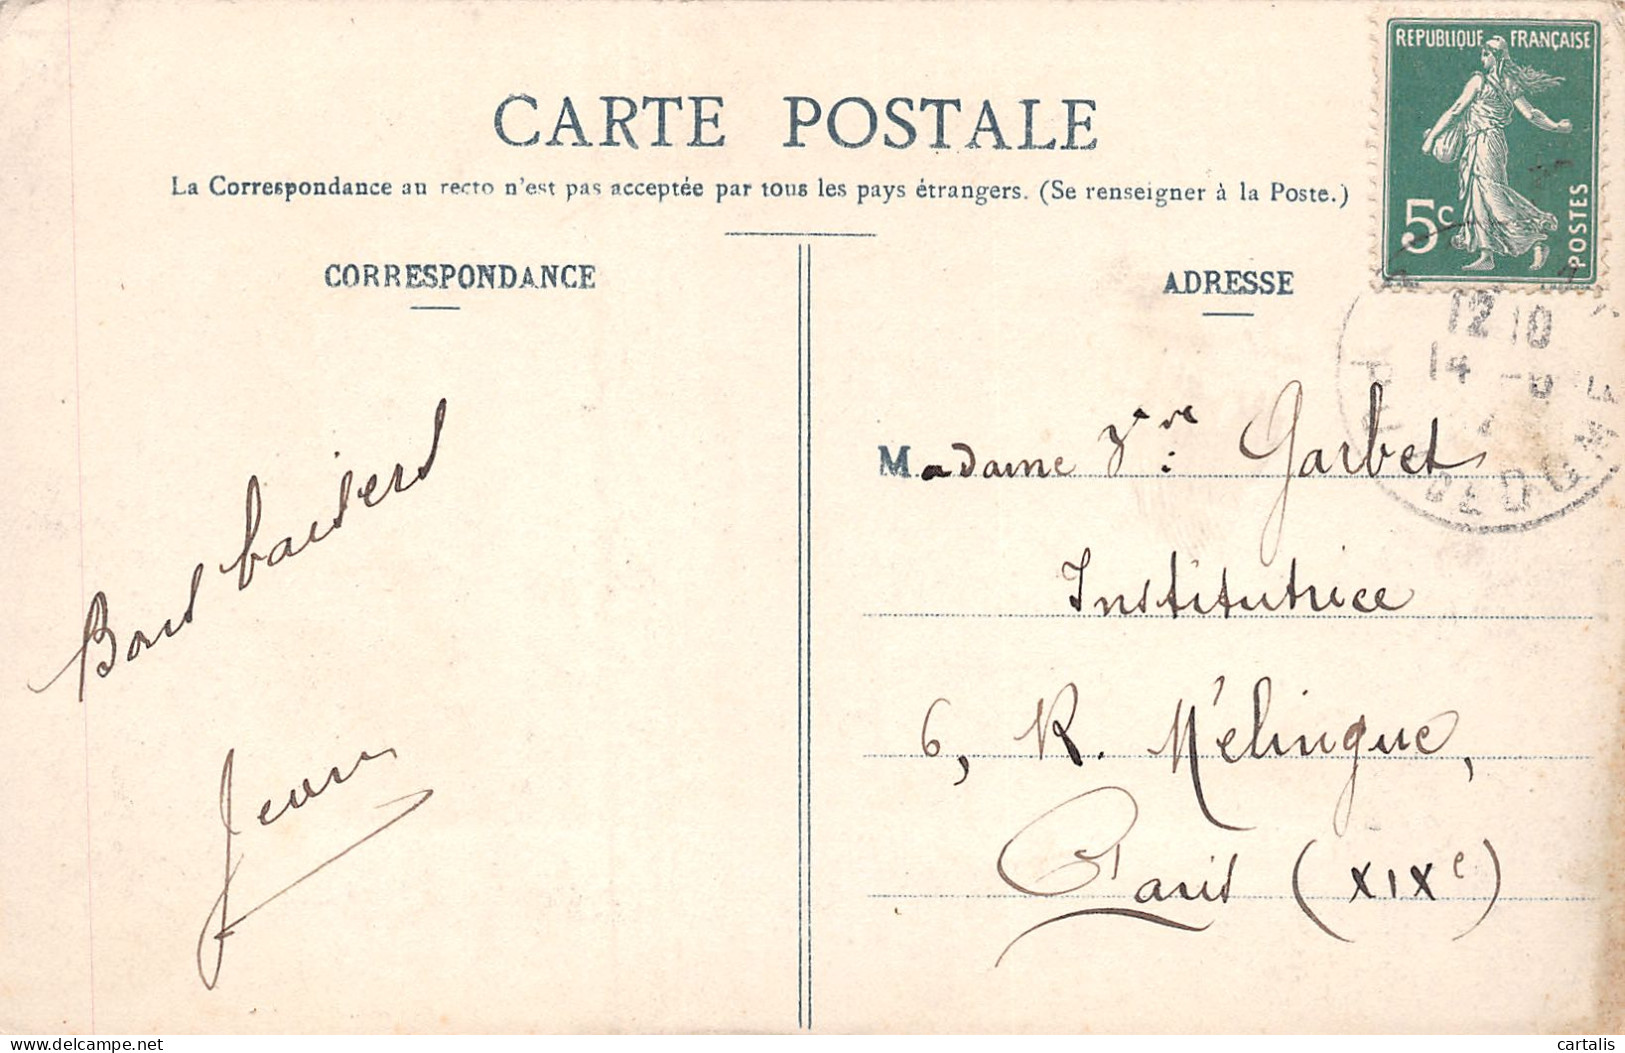 CARTE POSTALE
La Correspondance au recto n'est pas acceptée par tous les pays étrangers. (Se renseigner à la Poste.)
REPUBLIQUE FRANÇAISE
5c
POSTES
CORRESPONDANCE
ADRESSE
12 10
14
Bons baisers
Jean
Madame Vve Garbet
Institutrice
6, R. Mélingue,
Paris (XIXe)
delcampe.net
cartalis